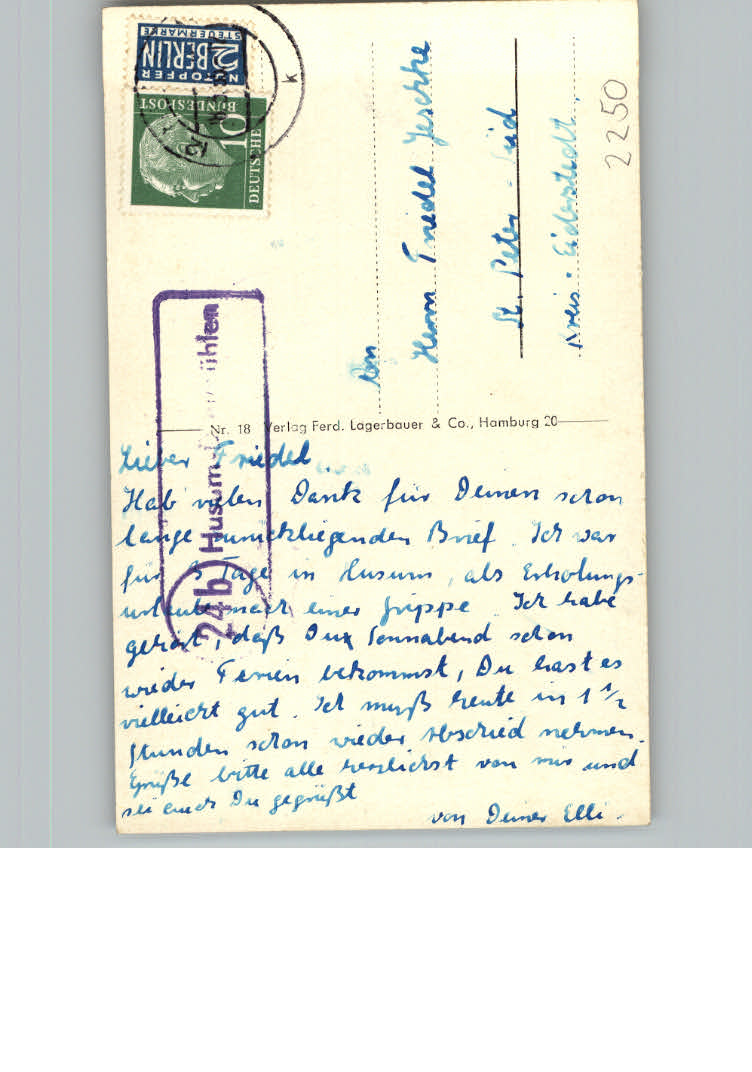 NOTOPFER
2 BERLIN
STEUERMARKE
DEUTSCHE
BUNDESPOST
10
k
2250
An
Herrn Friedel Jeschke
St. Peter - Süd
Kreis: Eiderstedt.
Nr. 18 Verlag Ferd. Lagerbauer & Co., Hamburg 20
24b Husum
Lieber Friedel.
Hab' vielen Dank für Deinen schon
lange zurückliegenden Brief. Ich war
für 3 Tage in Husum, als Erholungs-
urlaub nach einer Grippe. Ich habe
gehört, daß Du Sonnabend schon
wieder Ferien bekommst, Du hast es
vielleicht gut. Ich muß heute in 1 1/2
Stunden schon wieder Abschied nehmen.
Grüße bitte alle herzlichst von mir und
sei auch Du gegrüßt
von Deiner Elli.